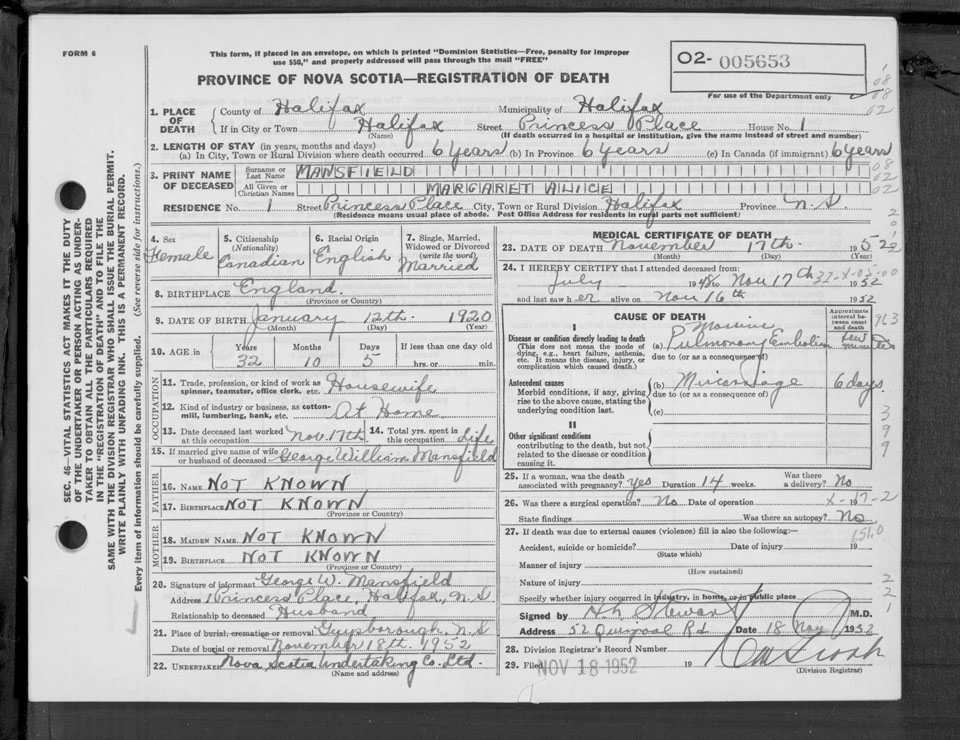 FORM 6
This form, if placed in an envelope, on which is printed "Dominion Statistics—Free, penalty for improper
use $50," and properly addressed will pass through the mail "FREE"
O2- 005653
For use of the Department only
PROVINCE OF NOVA SCOTIA—REGISTRATION OF DEATH
1. PLACE OF DEATH County of Halifax Municipality of Halifax
If in City or Town Halifax Street Princess Place House No. 1
(Name) (If death occurred in a hospital or institution, give the name instead of street and number)
2. LENGTH OF STAY (in years, months and days)
(a) In City, Town or Rural Division where death occurred 6 years (b) In Province 6 years (c) In Canada (if immigrant) 6 years
3. PRINT NAME OF DECEASED Surname or Last Name MANSFIELD
All Given or Christian Names MARGARET ALICE
RESIDENCE No. 1 Street Princess Place City, Town or Rural Division Halifax Province N.S.
(Residence means usual place of abode. Post Office Address for residents in rural parts not sufficient)
4. Sex Female
5. Citizenship (Nationality) Canadian
6. Racial Origin English
7. Single, Married, Widowed or Divorced (write the word) Married
8. BIRTHPLACE England
(Province or Country)
9. DATE OF BIRTH January 12th 1920
(Month) (Day) (Year)
10. AGE in Years Months Days If less than one day old
32 10 5 hrs. or min.
OCCUPATION
11. Trade, profession or kind of work as spinner, teamster, office clerk, etc. Housewife
12. Kind of industry or business, as cotton-mill, lumbering, bank, etc. At Home
13. Date deceased last worked at this occupation Nov. 17th 14. Total yrs. spent in this occupation Life
15. If married give name of wife or husband of deceased George William Mansfield
FATHER
16. NAME NOT KNOWN
17. BIRTHPLACE NOT KNOWN
(Province or Country)
MOTHER
18. MAIDEN NAME NOT KNOWN
19. BIRTHPLACE NOT KNOWN
(Province or Country)
20. Signature of informant George W. Mansfield
Address 1 Princess Place, Halifax, N.S.
Relationship to deceased Husband
21. Place of burial, cremation or removal Guysborough, N.S
Date of burial or removal November 18th. 1952
22. UNDERTAKER Nova Scotia Undertaking Co. Ltd.
(Name and address)
MEDICAL CERTIFICATE OF DEATH
23. DATE OF DEATH November 17th. 1952
(Month) (Day) (Year)
24. I HEREBY CERTIFY that I attended deceased from:
July 1948 to Nov 17th 1952
and last saw her alive on Nov 16th 1952
CAUSE OF DEATH
Approximate interval between onset and death
I
Disease or condition directly leading to death
(This does not mean the mode of dying, e.g., heart failure, asthenia, etc. It means the disease, injury, or complication which caused death.)
(a) Massive Pulmonary Embolism few minutes
due to (or as a consequence of)
Antecedent causes
Morbid conditions, if any, giving rise to the above cause, stating the underlying condition last.
(b) Miscarriage 6 days
due to (or as a consequence of)
(c)
II
Other significant conditions
contributing to the death, but not related to the disease or condition causing it.
25. If a woman, was the death associated with pregnancy? yes Duration 14 weeks. Was there a delivery? No
26. Was there a surgical operation? No Date of operation
State findings Was there an autopsy? No
27. If death was due to external causes (violence) fill in also the following:—
Accident, suicide or homicide? Date of injury 19
(State which)
Manner of injury
(How sustained)
Nature of injury
Specify whether injury occurred in industry, in home, or in public place
Signed by H.N. Stewart M.D.
Address 52 Quinpool Rd Date 18 Nov 1952
28. Division Registrar's Record Number
29. Filed NOV 18 1952 19
(Division Registrar)
SEC. 46—VITAL STATISTICS ACT MAKES IT THE DUTY
OF THE UNDERTAKER OR PERSON ACTING AS UNDER-
TAKER TO OBTAIN ALL THE PARTICULARS REQUIRED
IN THE "REGISTRATION OF DEATH" AND TO FILE THE
SAME WITH THE DIVISION REGISTRAR WHO SHALL ISSUE THE BURIAL PERMIT.
WRITE PLAINLY WITH UNFADING INK. THIS IS A PERMANENT RECORD.
Every item of information should be carefully supplied. (See reverse side for instructions.)